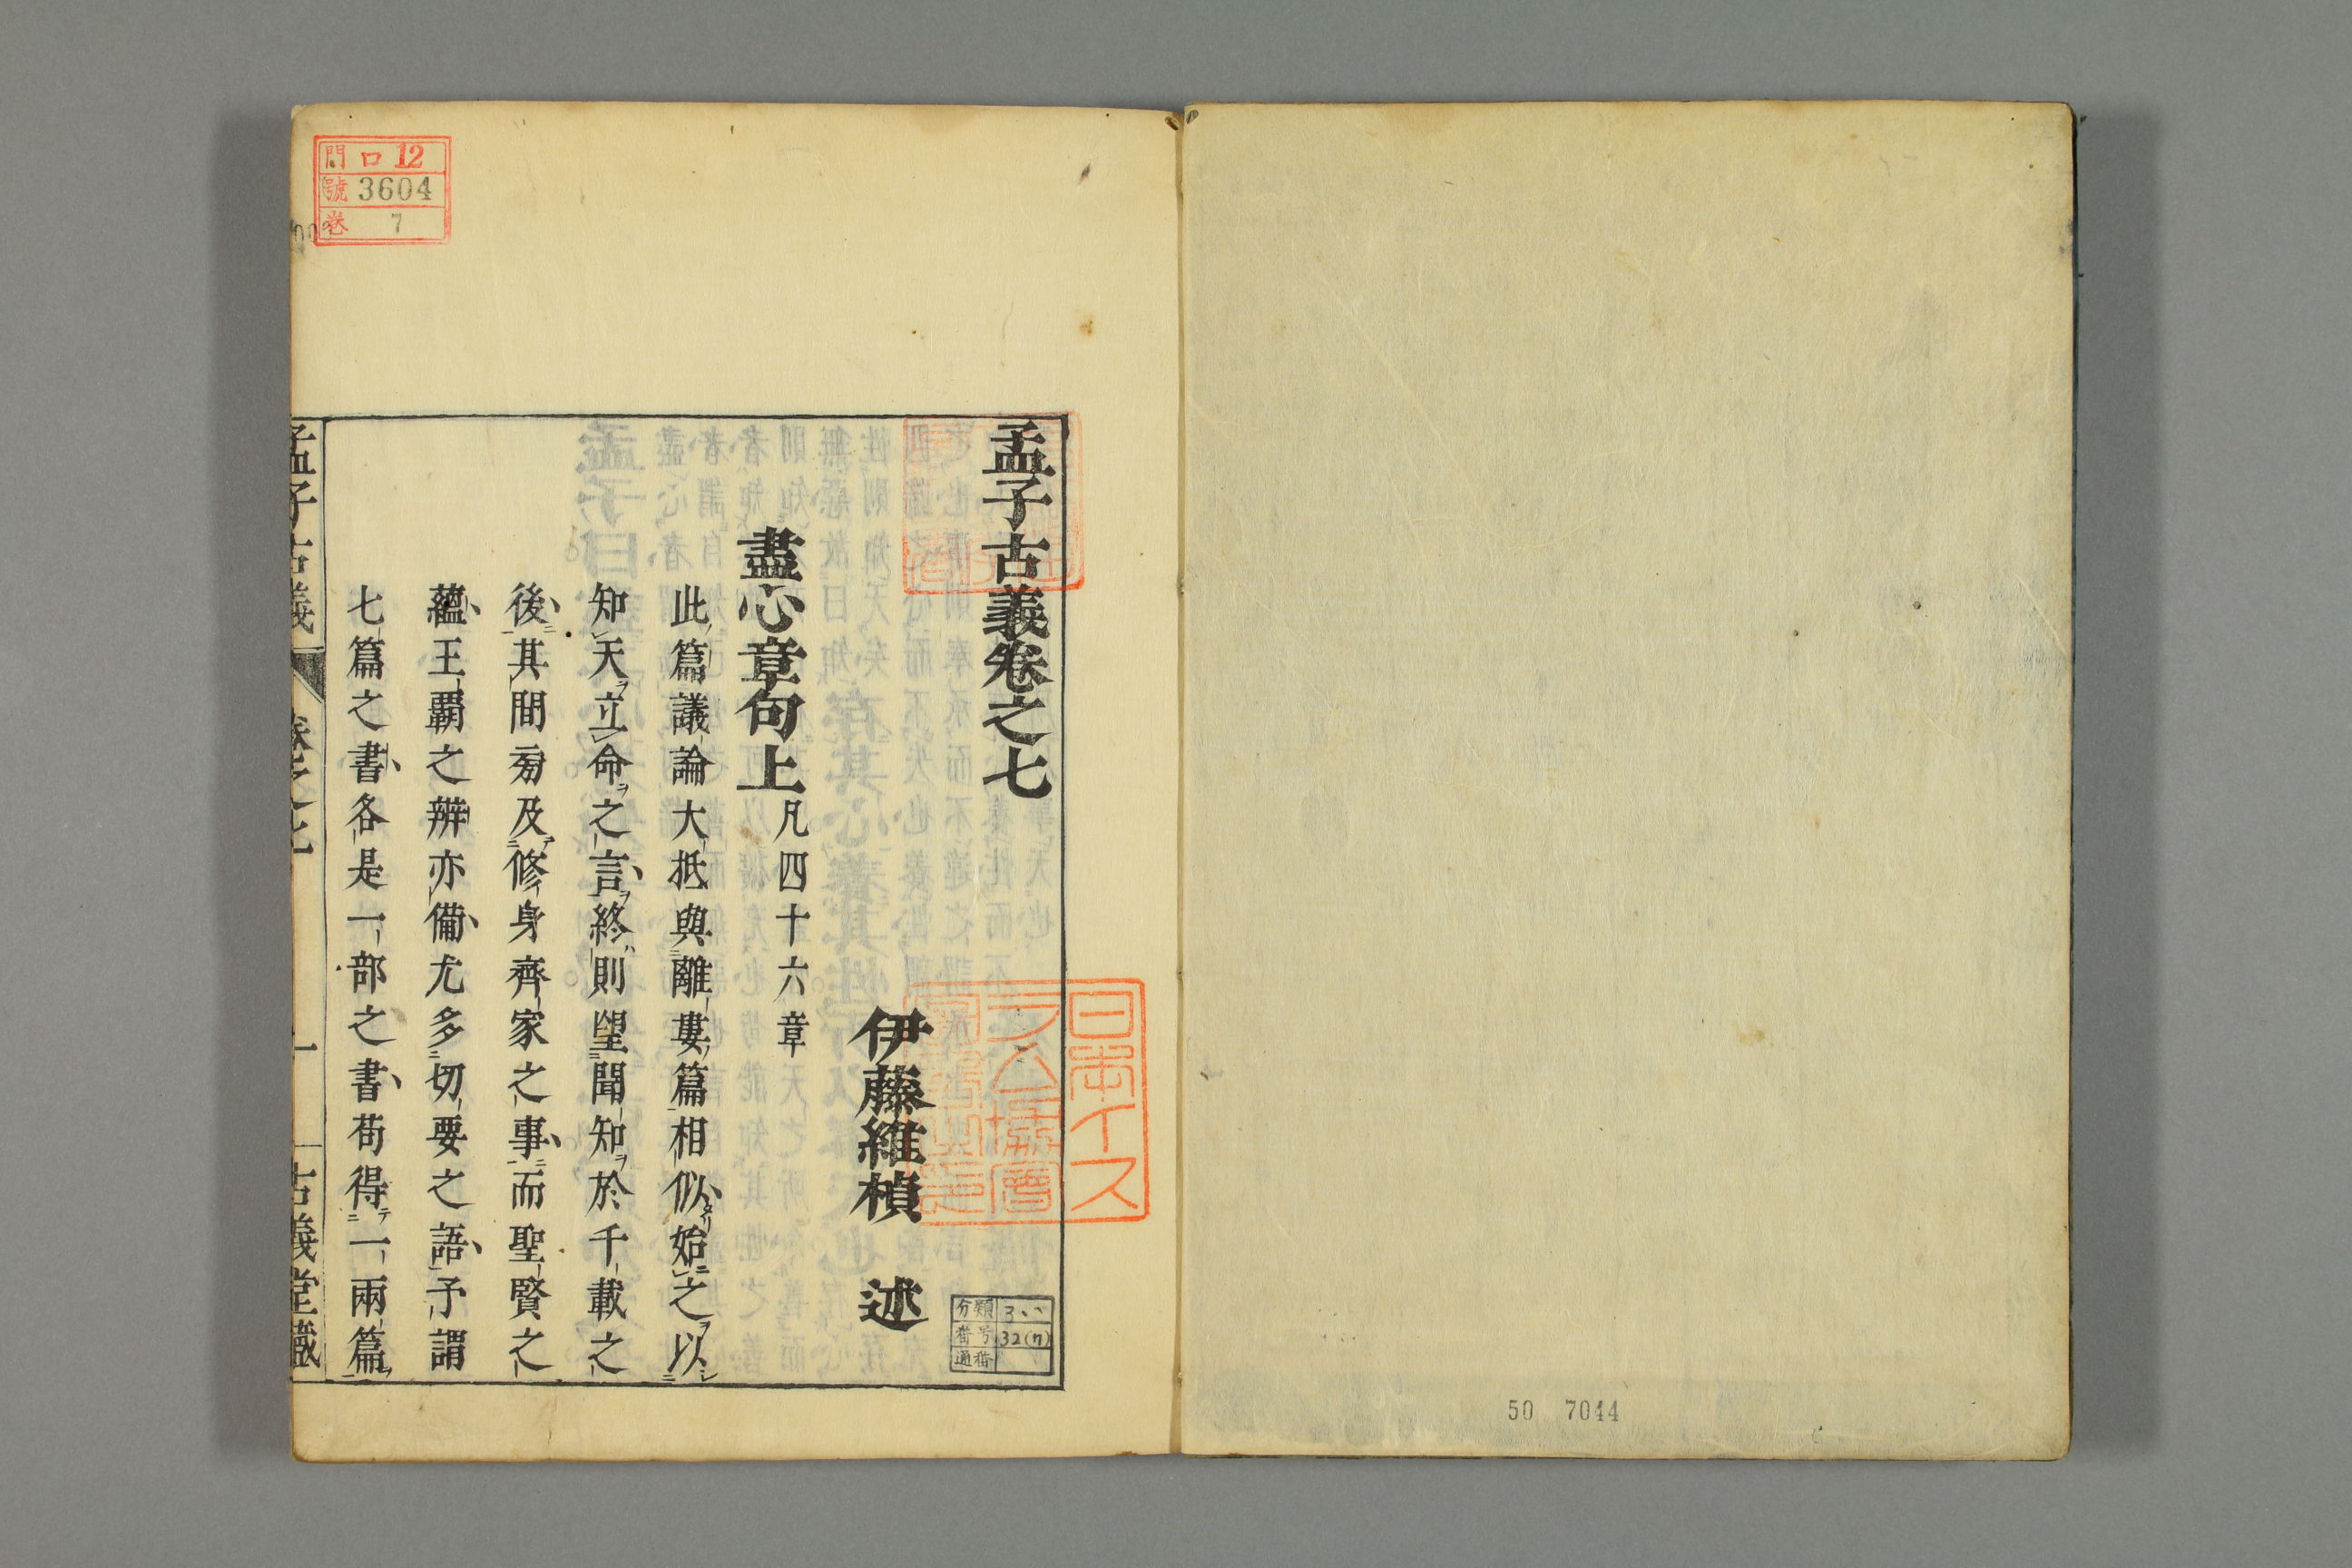 50 7044
孟子古義卷之七
日本イス
ラム協會
伊藤維楨 述
分類
番号 32(7)
通番
盡心章句上 凡四十六章
此篇議論大抵與離婁篇相似始之以
知天立命之言終則望聞知於千載之
後其間旁及修身齊家之事而聖賢之
蘊王霸之辨亦備尤多切要之語予謂
七篇之書各是一部之書苟得一兩篇
孟子古義 卷之七 一 古義堂藏
門 口12
號 3604
卷 7